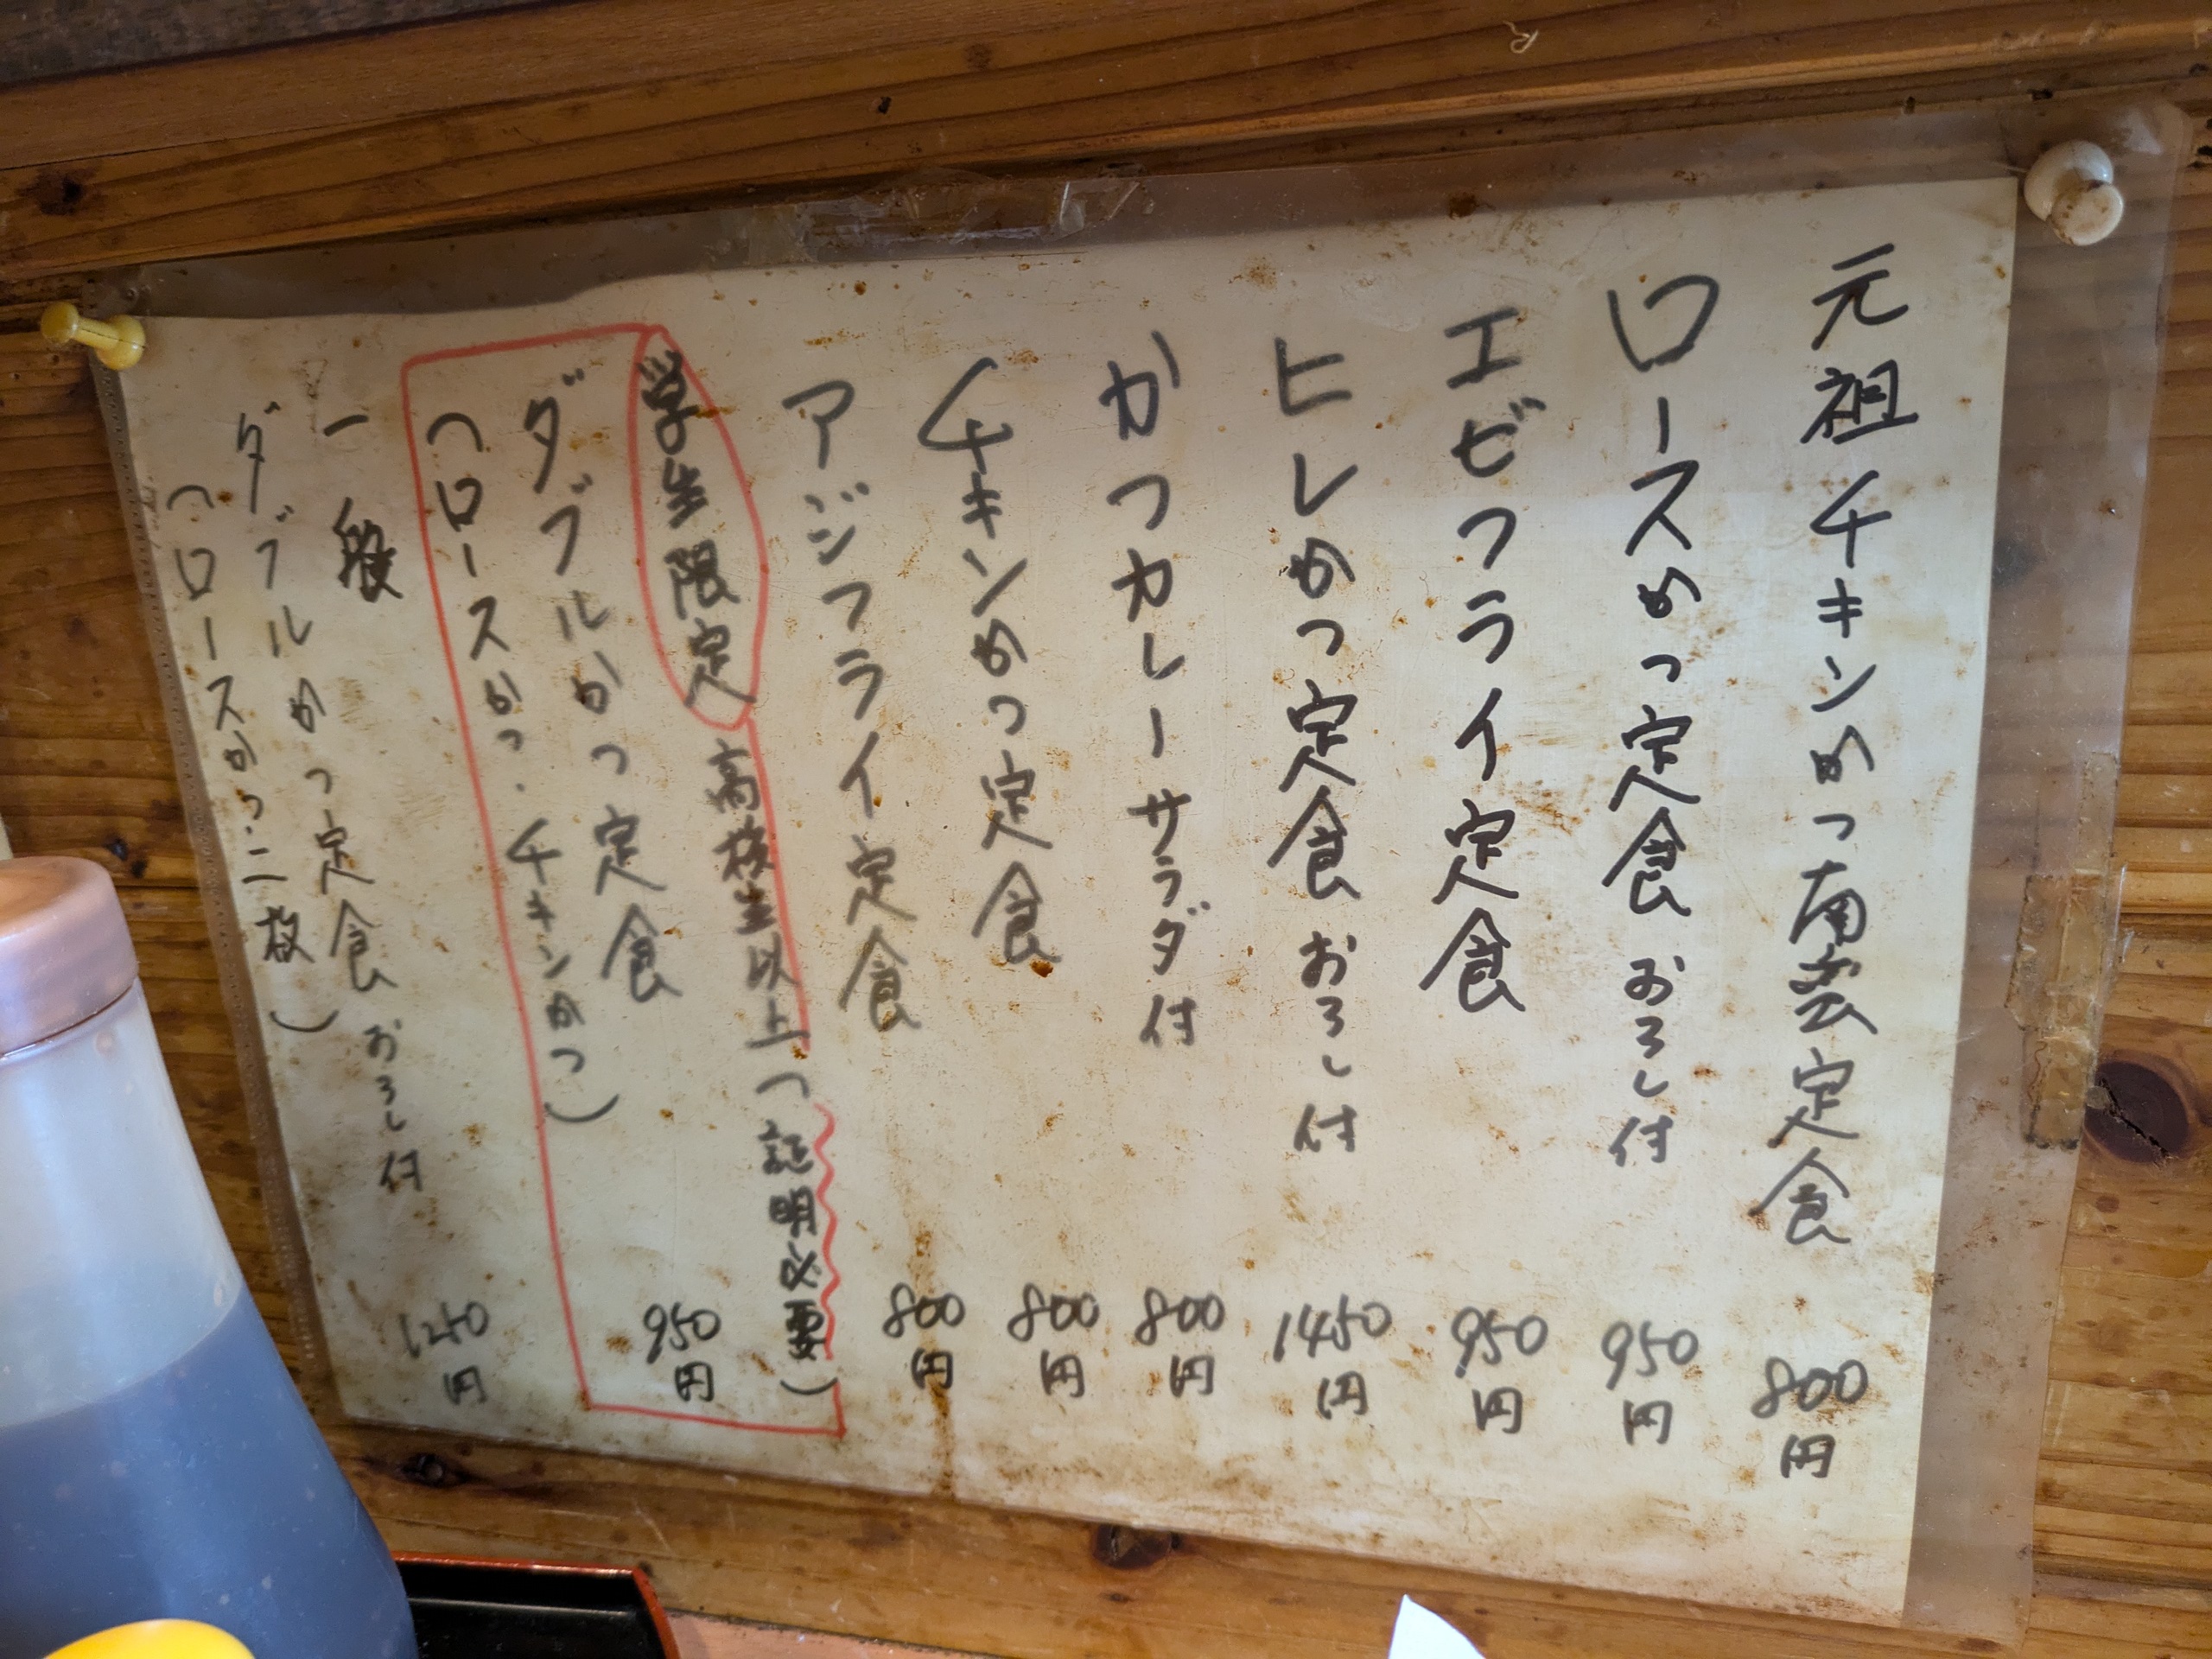 元祖チキンかつ南蛮定食 800円
ロースかつ定食 おろし付 950円
エビフライ定食 950円
ヒレかつ定食 おろし付 1450円
かつカレーサラダ付 800円
チキンかつ定食 800円
アジフライ定食 800円
学生限定 高校生以上(証明必要)
ダブルかつ定食 950円
(ロースかつ・チキンかつ)
一般
ダブルかつ定食 おろし付 1250円
(ロースかつ・二枚)